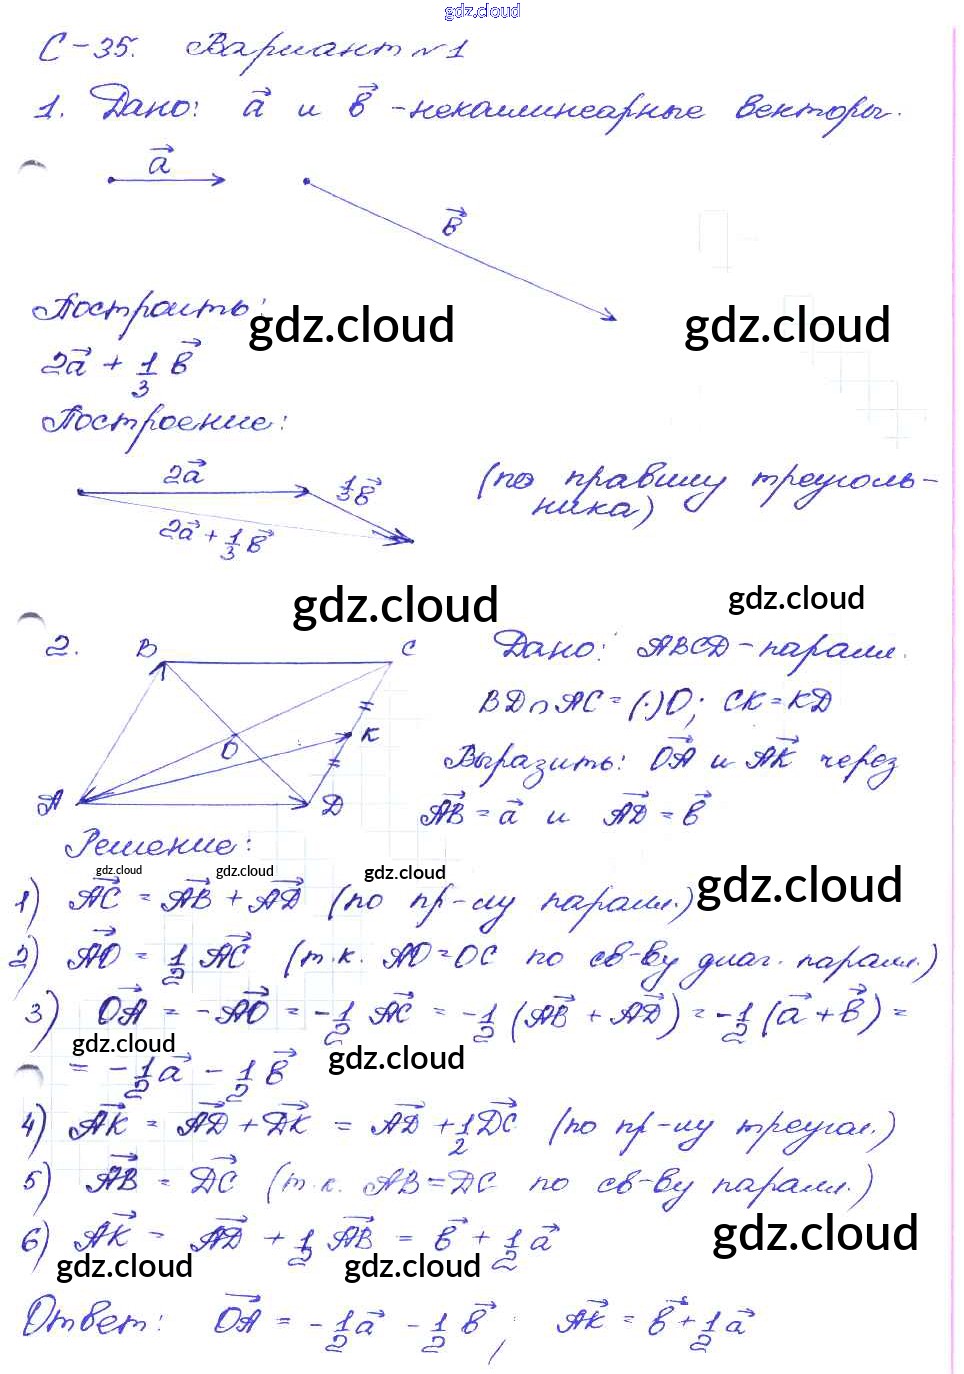 gdz.cloud
С-35. Вариант №1
1. Дано: a⃗ и b⃗ - неколлинеарные векторы.
a⃗
b⃗
Построить:
gdz.cloud gdz.cloud
2a⃗ + 1/3 b⃗
Построение:
2a⃗ 1/3 b⃗ (по правилу треуголь-
ника)
2a⃗ + 1/3 b⃗
gdz.cloud gdz.cloud
2. B C Дано: ABCD - паралл.
BD ∩ AC = (·)O; CK = KD
O K
Выразить: OA⃗ и AK⃗ через
A D AB⃗ = a⃗ и AD⃗ = b⃗
Решение:
gdz.cloud gdz.cloud gdz.cloud gdz.cloud
1) AC⃗ = AB⃗ + AD⃗ (по пр-лу паралл.)
2) AO⃗ = 1/2 AC⃗ (т.к. AO = OC по св-ву диаг. паралл.)
3) OA⃗ = - AO⃗ = - 1/2 AC⃗ = - 1/2 (AB⃗ + AD⃗) = - 1/2 (a⃗ + b⃗) =
gdz.cloud gdz.cloud
= - 1/2 a⃗ - 1/2 b⃗
4) AK⃗ = AD⃗ + DK⃗ = AD⃗ + 1/2 DC⃗ (по пр-лу треугол.)
5) AB⃗ = DC⃗ (т.к. AB = DC по св-ву паралл.)
6) AK⃗ = AD⃗ + 1/2 AB⃗ = b⃗ + 1/2 a⃗
gdz.cloud gdz.cloud gdz.cloud
Ответ: OA⃗ = - 1/2 a⃗ - 1/2 b⃗; AK⃗ = b⃗ + 1/2 a⃗